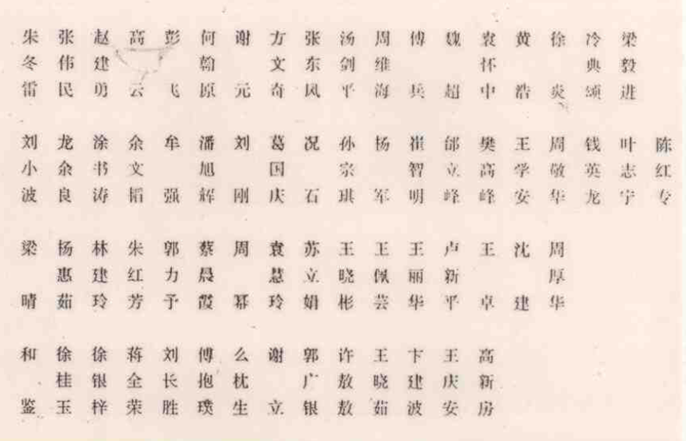 朱 张 赵 高 彭 何 谢 方 张 汤 周 傅 魏 袁 黄 徐 冷 梁
冬 伟 建 翰 文 东 剑 维 怀 典 毅
雷 民 勇 云 飞 原 元 奇 风 平 海 兵 超 中 浩 炎 颂 进
刘 龙 涂 余 牟 潘 刘 葛 况 孙 杨 崔 邰 樊 王 周 钱 叶 陈
小 余 书 文 旭 国 宗 智 立 高 学 敬 英 志 红
波 良 涛 韬 强 辉 刚 庆 石 琪 军 明 峰 峰 安 华 龙 宁 专
梁 杨 林 朱 郭 蔡 周 袁 苏 王 王 王 卢 王 沈 周
惠 建 红 力 晨 慧 立 晓 佩 丽 新 厚
晴 茹 玲 芳 予 霞 幂 玲 娟 彬 芸 华 平 卓 建 华
和 徐 徐 蒋 刘 傅 么 谢 郭 许 王 卞 王 高
桂 银 全 长 抱 枕 广 敖 晓 建 庆 新
鉴 玉 梓 荣 胜 璞 生 立 银 敖 茹 波 安 房